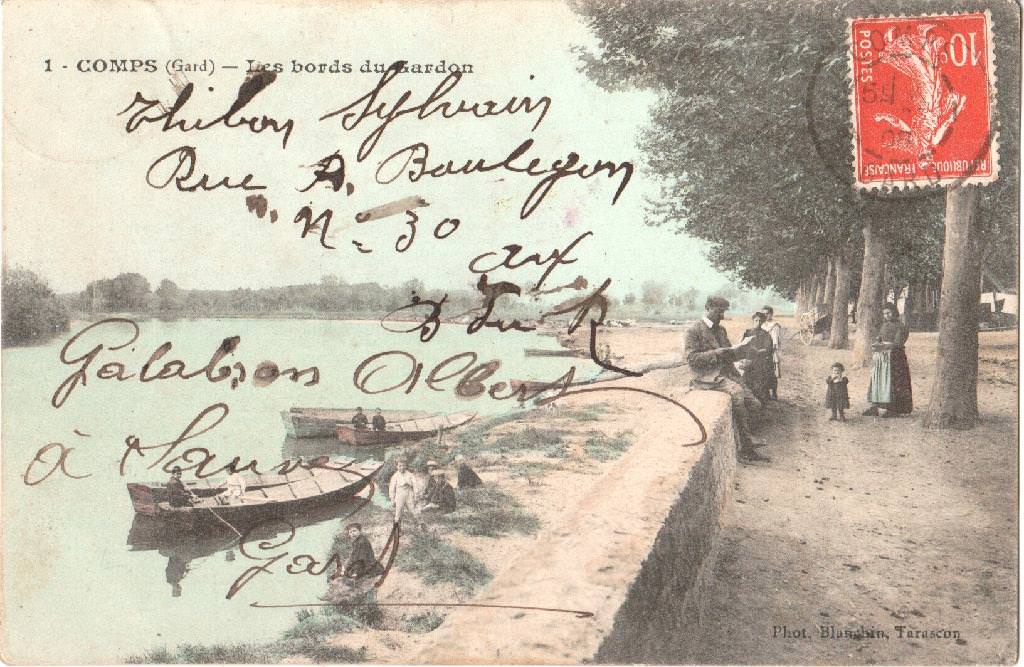 1 - COMPS (Gard) — Les bords du Gardon
10c
POSTES
REPUBLIQUE FRANÇAISE
Thibon Sylvain
Rue A. Boulegon
N° 30
aux
Galabron Albert
à Sauve
Gard
Phot. Blanchin, Tarascon